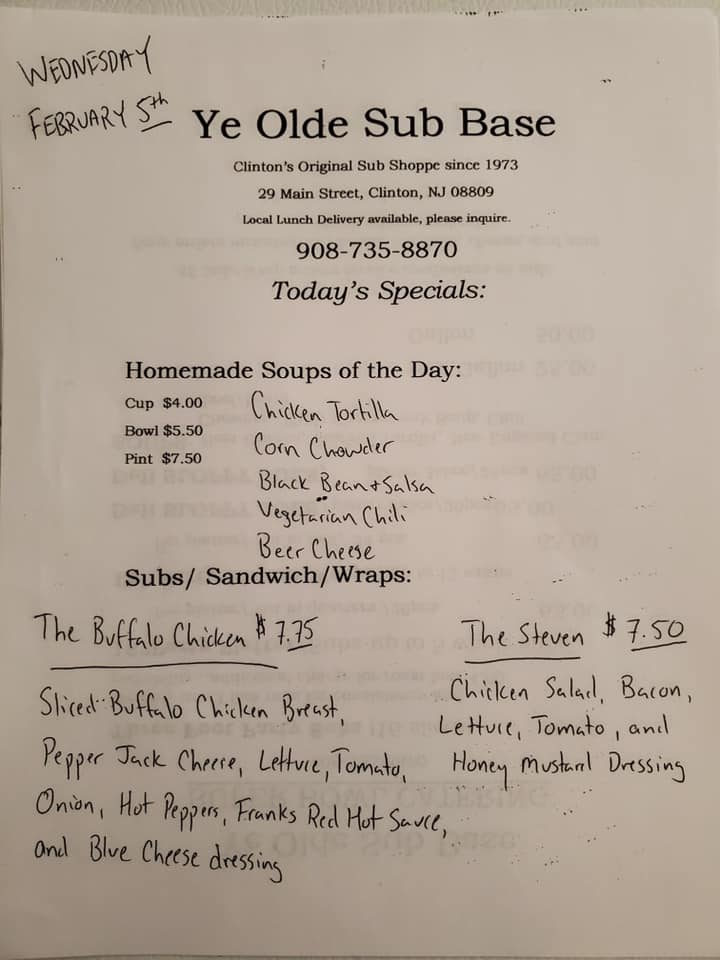 WEDNESDAY
FEBRUARY 5th
Ye Olde Sub Base
Clinton's Original Sub Shoppe since 1973
29 Main Street, Clinton, NJ 08809
Local Lunch Delivery available, please inquire.
908-735-8870
Today's Specials:
Homemade Soups of the Day:
Cup $4.00
Bowl $5.50
Pint $7.50
Chicken Tortilla
Corn Chowder
Black Bean + Salsa
Vegetarian Chili
Beer Cheese
Subs/ Sandwich/Wraps:
The Buffalo Chicken $ 7.75
Sliced Buffalo Chicken Breast,
Pepper Jack Cheese, Lettuce, Tomato,
Onion, Hot Peppers, Franks Red Hot Sauce,
and Blue Cheese dressing
The Steven $ 7.50
Chicken Salad, Bacon,
Lettuce, Tomato, and
Honey Mustard Dressing